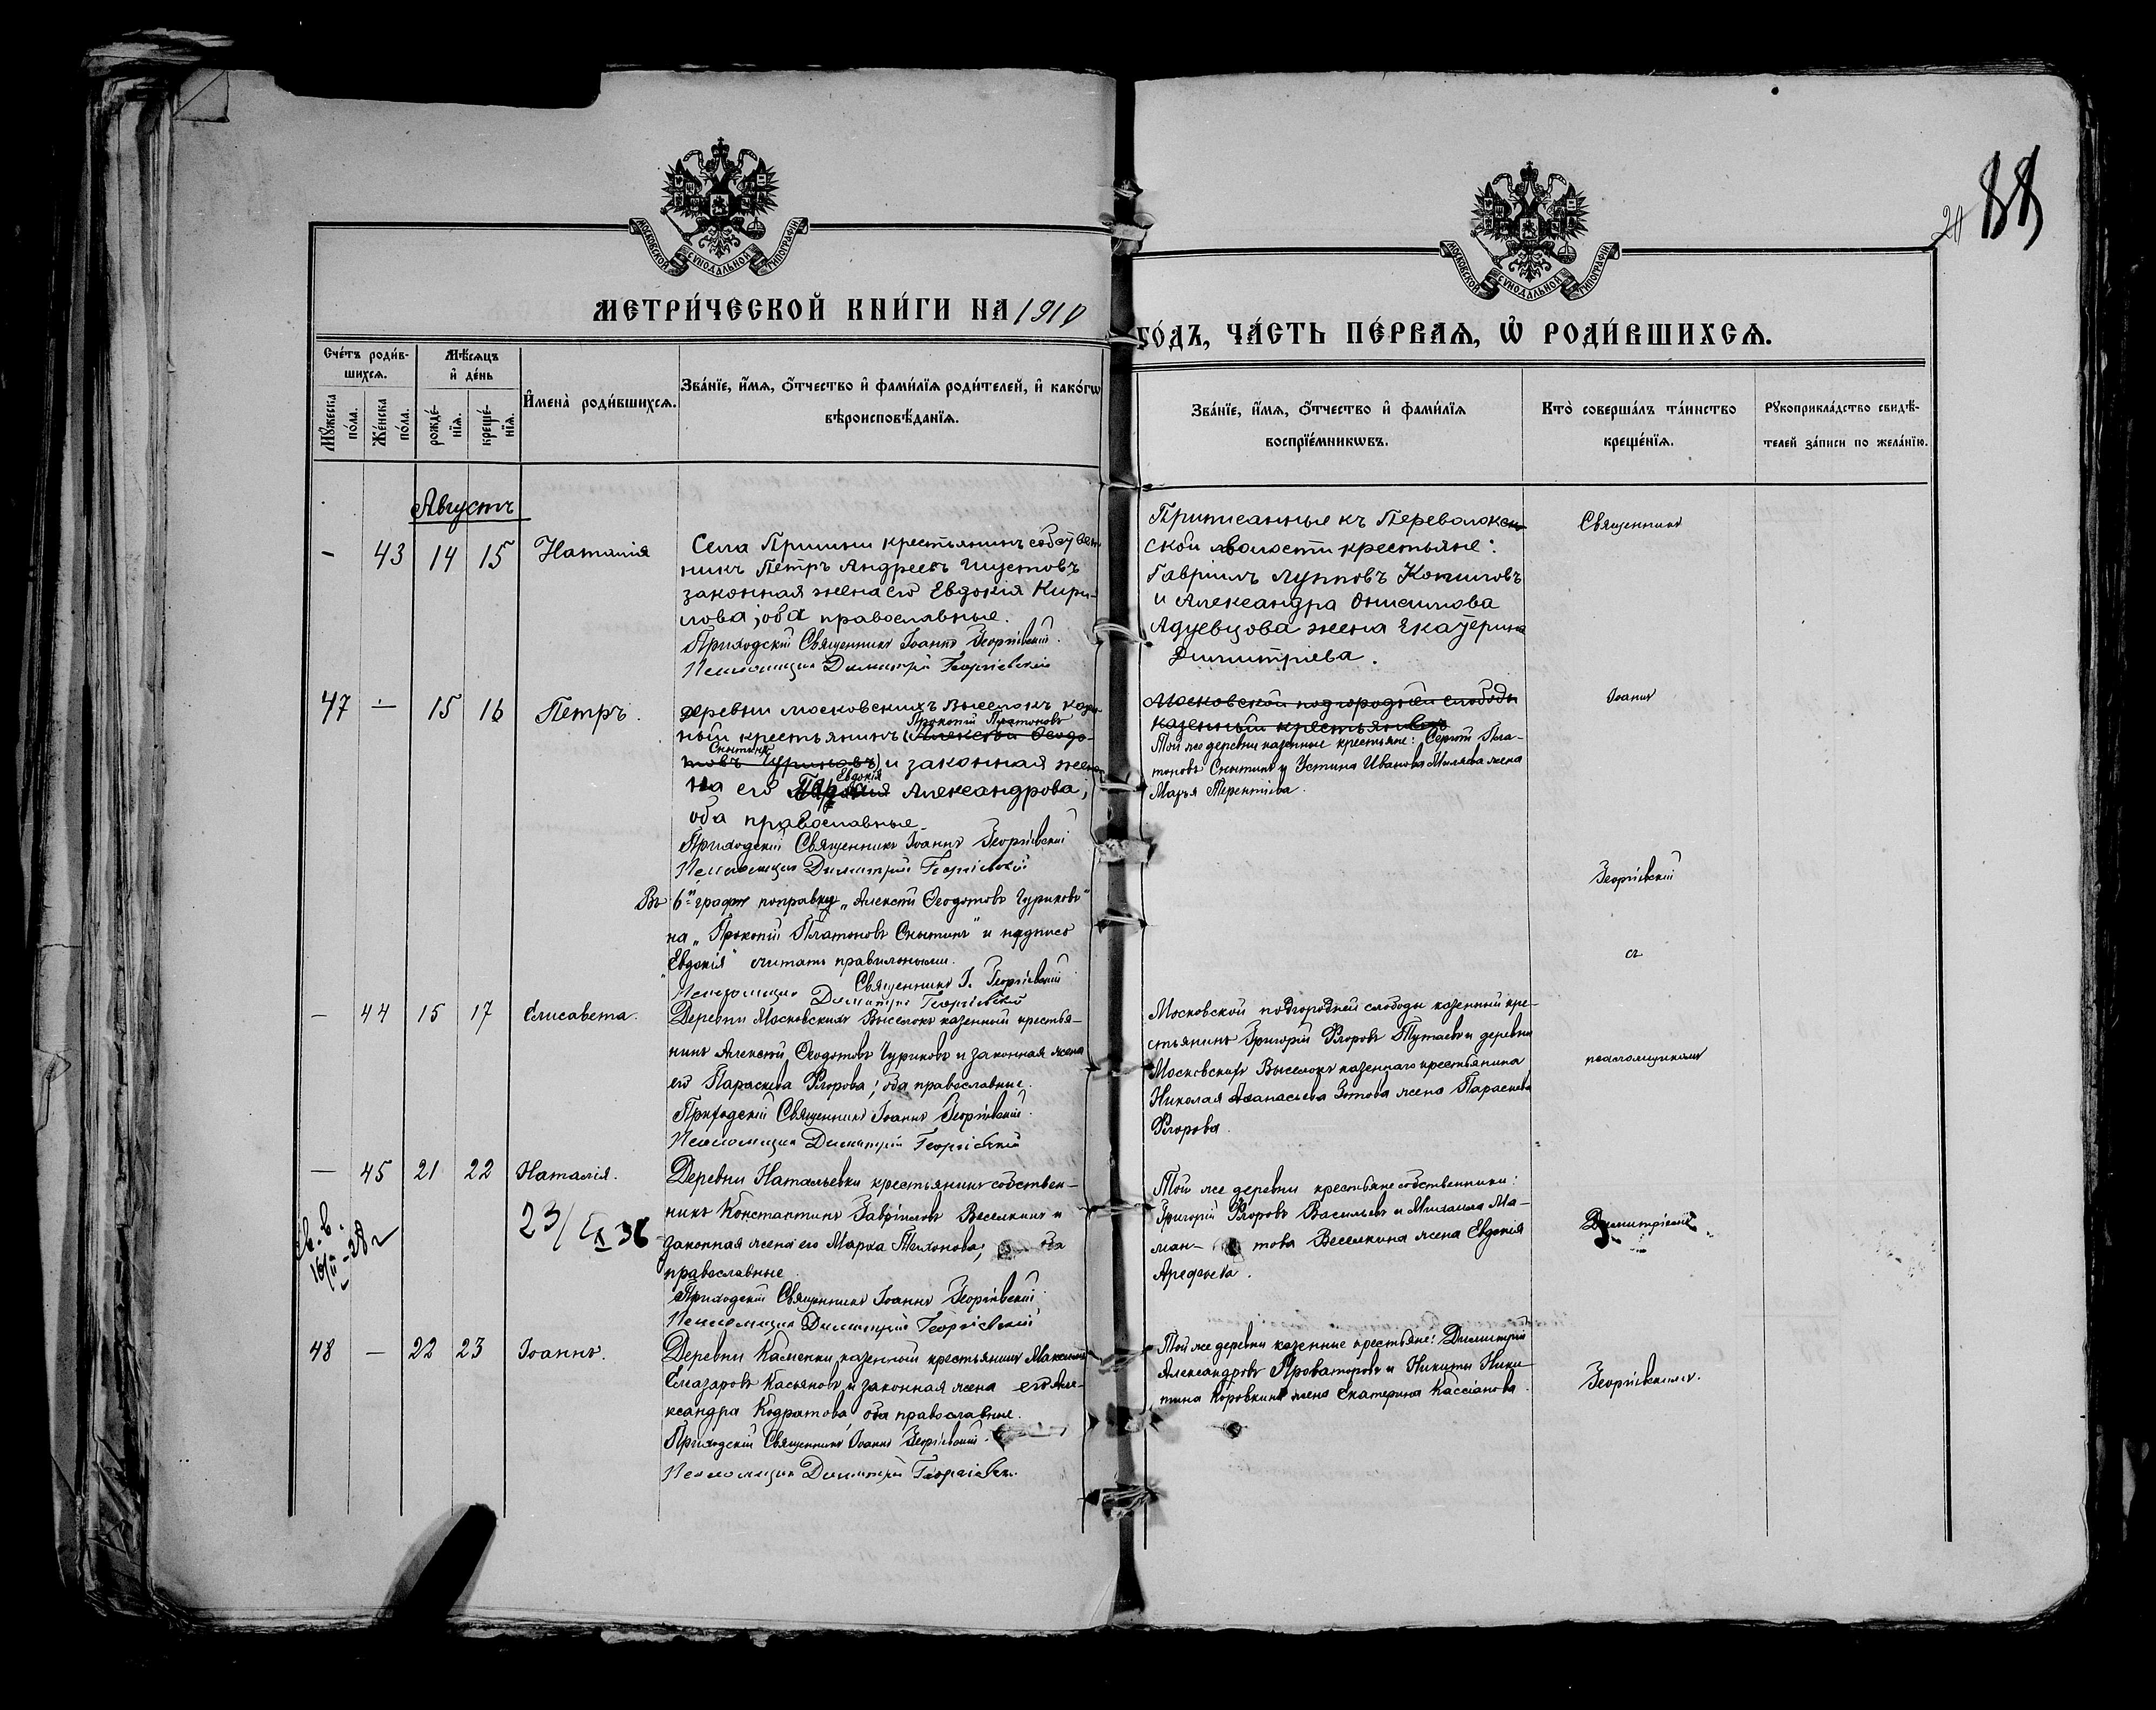 20 88
МОСКОВСКОЙ СѴНОДАЛЬНОЙ ТИПОГРАФІИ
МОСКОВСКОЙ СѴНОДАЛЬНОЙ ТИПОГРАФІИ
МЕТРИ́ЧЕСКОЙ КНИ́ГИ НА 1910
ГО́ДЪ, ЧА́СТЬ ПЕ́РВАѦ, Ѡ҆ РОДИ́ВШИХСѦ.
Сче́тъ роди́в-
шихсѧ.
Мѣ́сѧцъ
и҆ де́нь
Мꙋ́жеска
по́ла.
Же́нска
по́ла.
рожде́-
нїѧ.
креще́-
нїѧ.
И҆мена̀ роди́вшихсѧ.
Зва́нїе, и҆́мѧ, ѻ҆́тчество и҆ фами́лїѧ роди́телей, и҆ како́гѡ
вѣроисповѣ́данїѧ.
Зва́нїе, и҆́мѧ, ѻ҆́тчество и҆ фами́лїѧ
воспрїе́мникѡвъ.
Кто̀ соверша́лъ та́инство
креще́нїѧ.
Рꙋкоприкла́дство свидѣ́-
телей за́писи по жела́нїю.
Августъ
- 43 14 15 Наталія
Села Пришни крестьянинъ собствен-
никъ Петръ Андреевъ Шустовъ
законная жена его Евдокія Кири-
лова; оба православные.
Приходскій Священникъ Іоаннъ Георгіевскій.
Псаломщикъ Димитрій Георгіевскій
Приписанные къ Переволокин-
ской волости крестьяне:
Гавріилъ Лупповъ Копиловъ
и Александра Онисимова
Адуевцова жена Екатерина
Димитріева.
Священникъ
47 — 15 16 Петръ.
деревни Московскихъ Выселокъ казен-
Прокопій Платоновъ
ный крестьянинъ (Алексѣй Ѳеодо-
Сныткинъ
товъ Чуриковъ) и законная жен-
Евдокія
на его Александрова;
оба православные
Приходскій Священникъ Іоаннъ Георгіевскій
Псаломщикъ Димитрій Георгіевскій
Въ 6й графѣ поправку „Алексѣй Ѳеодотовъ Чуриковъ"
на „Прокопій Платоновъ Сныткинъ" и надпись
"Евдокія" считать правильными.
Священникъ І. Георгіевскій
Псаломщикъ Димитрій Георгіевскій
Московской подгородней слободы
казенный крестьянинъ
Той же деревни казенные крестьяне: Сергѣй Пла-
тоновъ Сныткинъ и Устина Иванова Миляева жена
Марья Терентіева.
Іоаннъ
Георгіевскій
съ
— 44 15 17 Елисавета.
Деревни Московскихъ Выселокъ казенный крестья-
нинъ Алексѣй Ѳеодотовъ Чуриковъ и законная жена
его Параскева Флорова; оба православные.
Приходскій Священникъ Іоаннъ Георгіевскій.
Псаломщикъ Димитрій Георгіевскій
Московской подгородней слободы казенный кре-
стьянинъ Григорій Флоровъ Тутаевъ и деревни
Московскихъ Выселокъ казеннаго крестьянина
Николая Аѳанасьева Зотова жена Параскева
Флорова.
псаломщикомъ
— 45 21 22 Наталія.
23/IX 36
Деревни Натальевки крестьянинъ собствен-
никъ Константинъ Гавріиловъ Веселкинъ и
законная жена его Марѳа Тихонова; оба
православные.
Приходскій Священникъ Іоаннъ Георгіевскій
Псаломщикъ Димитрій Георгіевскій
Той же деревни крестьяне собственники:
Григорій Флоровъ Васильевъ и Михаила Ма-
ман- това Веселкина жена Евдокія
Арефьева.
Димитріемъ
48 — 22 23 Іоаннъ.
Деревни Каменки казенный крестьянинъ Максимъ
Елиазаровъ Касьяновъ и законная жена его Але-
ксандра Кодратова, оба православные.
Приходскій Священникъ Іоаннъ Георгіевскій.
Псаломщикъ Димитрій Георгіевск.
Той же деревни казенные крестьяне: Димитрій
Александровъ Проваторовъ и Никиты Ники-
тина Коровкина жена Екатерина Кассіанова.
Георгіевскимъ.